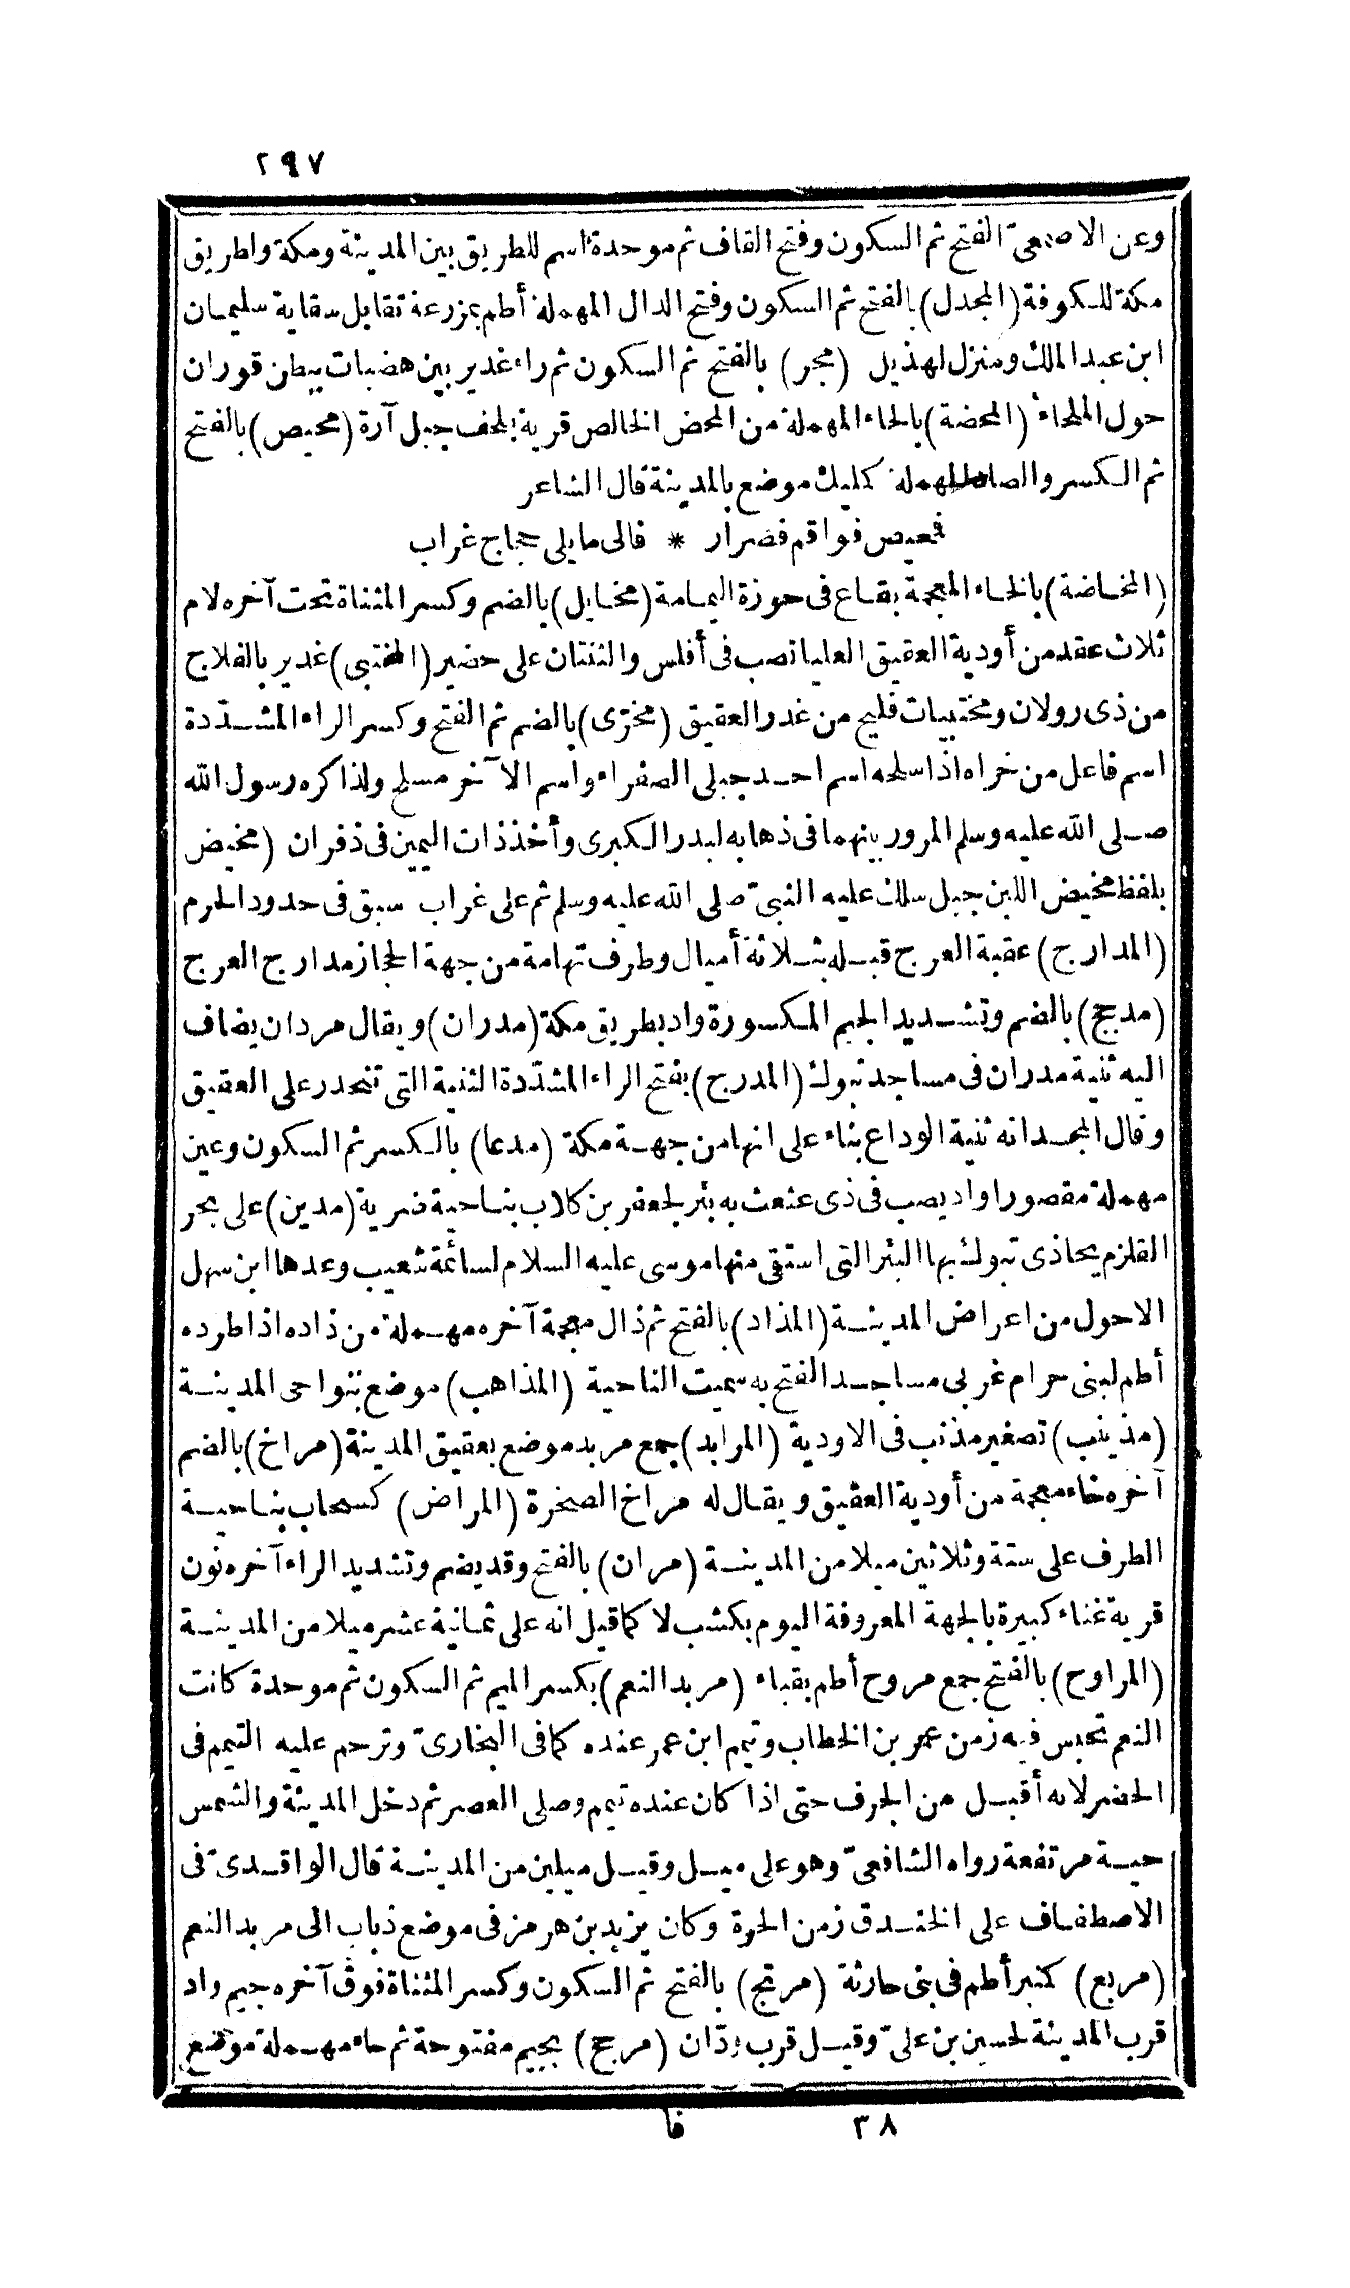 ٢٩٧
وعن الاصمعىّ الفتح ثم السكون وفتح القاف ثم موحدة اسم للطريق بين المدينة ومكة واطريق
مكة للكوفة (المجدل) بالفتح ثم السكون وفتح الدال المهملة أطم بمزرعة تقابل سقاية سليمان
ابن عبد الملك ومنزل لهذيل (مجر) بالفتح ثم السكون ثم راء غدير بين هضبات ببطن قوران
حول الملحاء (المحضة) بالحاء المهملة من المحض الخالص قرية بلحف جبل آرة (محيص) بالفتح
ثم الكسر والصاد المهملة كمليك موضع بالمدينة قال الشاعر
فمحيص فواقم فضرار * فالى مايلى حجاج غراب
(المخاضة) بالخاء المعجمة بقاع فى حوزة اليمامة (مخايل) بالضم وكسر المثناة تحت آخره لام
ثلاث عقد من أودية العقيق العليا تصب فى أفلس والثنتان على حضير (المختبى) غدير بالفلاج
من ذى رولان ومختبيات فليج من غدر العقيق (مخرّى) بالضم ثم الفتح وكسر الراء المشدّدة
اسم فاعل من خراه اذا سلحه اسم احد جبلى الصفراء واسم الآخر مسلح ولذا كره رسول الله
صلى الله عليه وسلم المرور بينهما فى ذهابه لبدر الكبرى وأخذ ذات اليمين فى ذفران (مخيض
بلفظ مخيض اللبن جبل سلك عليه النبىّ صلى الله عليه وسلم ثم على غراب سبق فى حدود الحرم
(المدارج) عقبة العرج قبله بثلاثة أميال وطرف تهامة من جهة الحجاز مدارج العرج
(مدجج) بالضم وتشديد الجيم المكسورة واد بطريق مكة (مدران) ويقال مردان يضاف
اليه ثنية مدران فى مساجد تبوك (المدرج) بفتح الراء المشدّدة الثنية التى تنحدر على العقيق
وقال المجد انه ثنية الوداع بناء على انها من جهة مكة (مدعا) بالكسر ثم السكون وعين
مهملة مقصورا واد يصب فى ذى عثعث به بئر لجعفر بن كلاب بناحية ضرية (مدين) على بحر
القلزم يحاذى تبوك بها البئر التى استقى منها موسى عليه السلام لسائمة شعيب وعدها ابن سهل
الاحول من اعراض المدينة (المذاد) بالفتح ثم ذال معجمة آخره مهملة من ذاده اذا طرده
أطم لبنى حرام غربى مساجد الفتح به سميت الناحية (المذاهب) موضع بنواحى المدينة
(مذينب) تصغير مذنب فى الاودية (المرابد) جمع مربد موضع بعقيق المدينة (مراخ) بالضم
آخره خاء معجمة من أودية العقيق ويقال له مراخ الصخرة (المراض) كسحاب بناحية
الطرف على ستة وثلاثين ميلا من المدينة (مران) بالفتح وقد يضم وتشديد الراء آخره نون
قرية غناء كبيرة بالجهة المعروفة اليوم بكشب لا كما قيل انه على ثمانية عشر ميلا من المدينة
(المراوح) بالفتح جمع مروح أطم بقباء (مربد النعم) بكسر الميم ثم السكون ثم موحدة كانت
النعم تحبس فيه زمن عمر بن الخطاب وتيمم ابن عمر عنده كما فى البخارىّ وترجم عليه التيمم فى
الحضر لانه أقبل من الجرف حتى اذا كان عنده تيمم وصلى العصر ثم دخل المدينة والشمس
حية مرتفعة رواه الشافعىّ وهو على ميل وقيل ميلين من المدينة قال الواقدىّ فى
الاصطفاف على الخندق زمن الحرة وكان يزيد بن هرمز فى موضع ذباب الى مربد النعم
(مربع) كمنبر أطم فى بنى حارثة (مرتج) بالفتح ثم السكون وكسر المثناة فوق آخره جيم واد
قرب المدينة لحسين بن علىّ وقيل قرب ودّان (مرجح) بجيم مفتوحة ثم حاء مهملة موضع
٣٨ فا